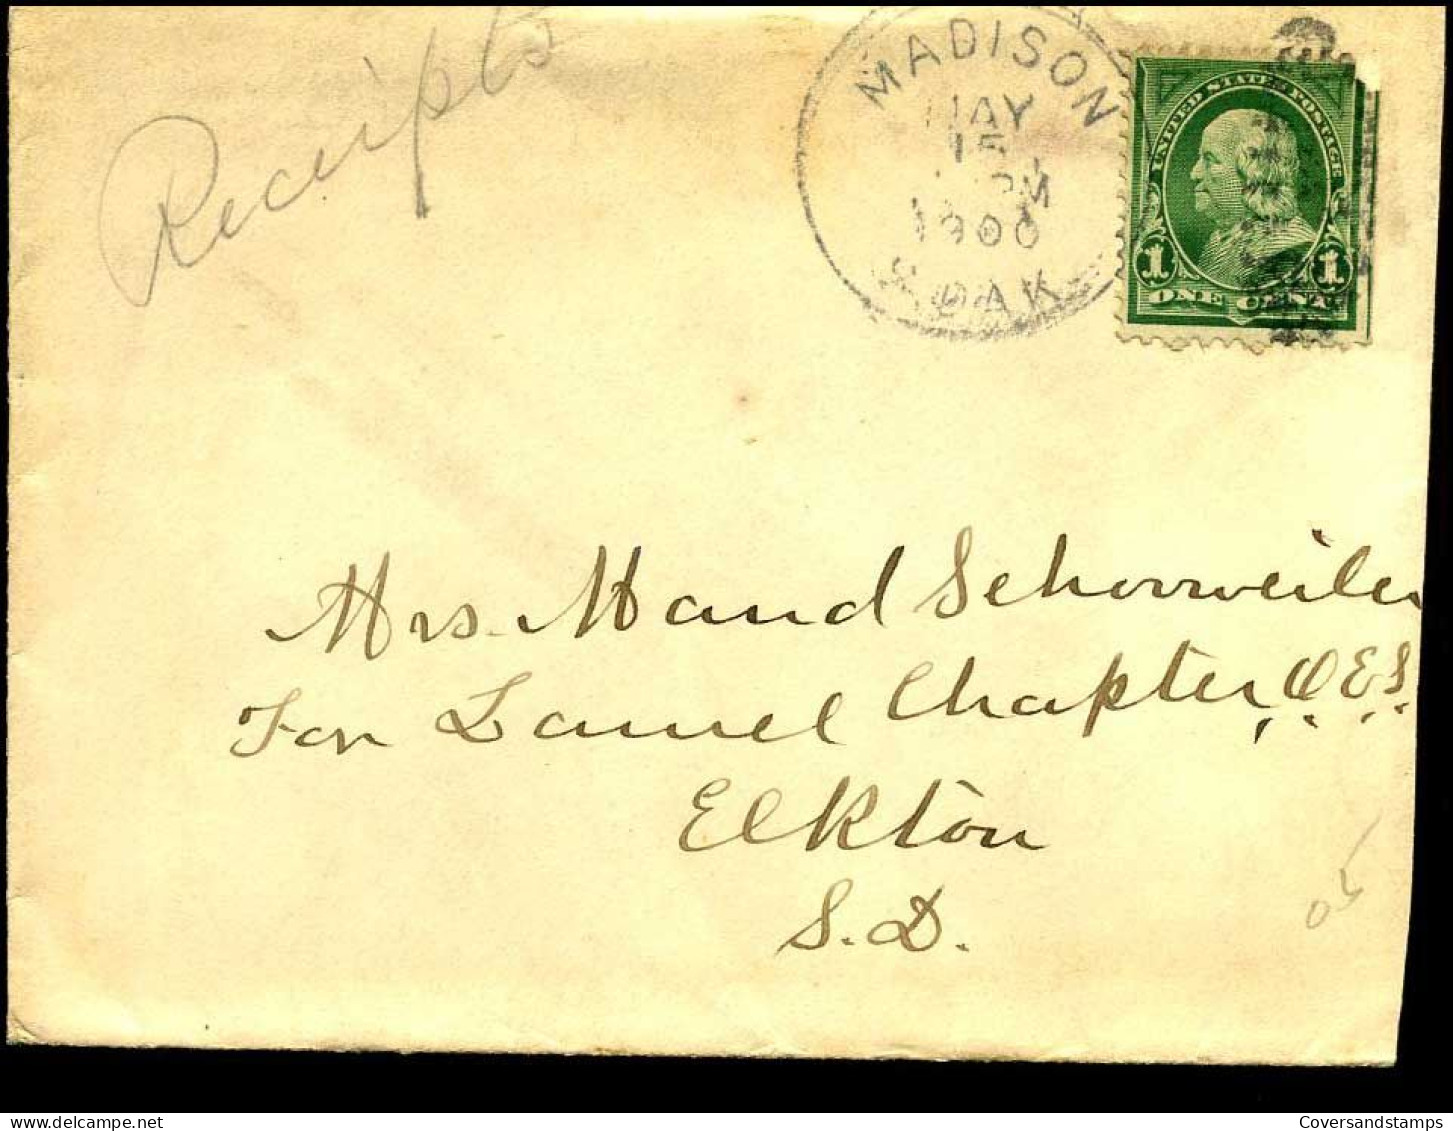 Receipts
MADISON
MAY
15
PM
1900
S. DAK.
UNITED STATES POSTAGE
1 1
ONE CENT
Mrs. Maud Schornweiler
For Laurel Chapter, O.E.S.
Elkton
S.D.
Coversandstamps